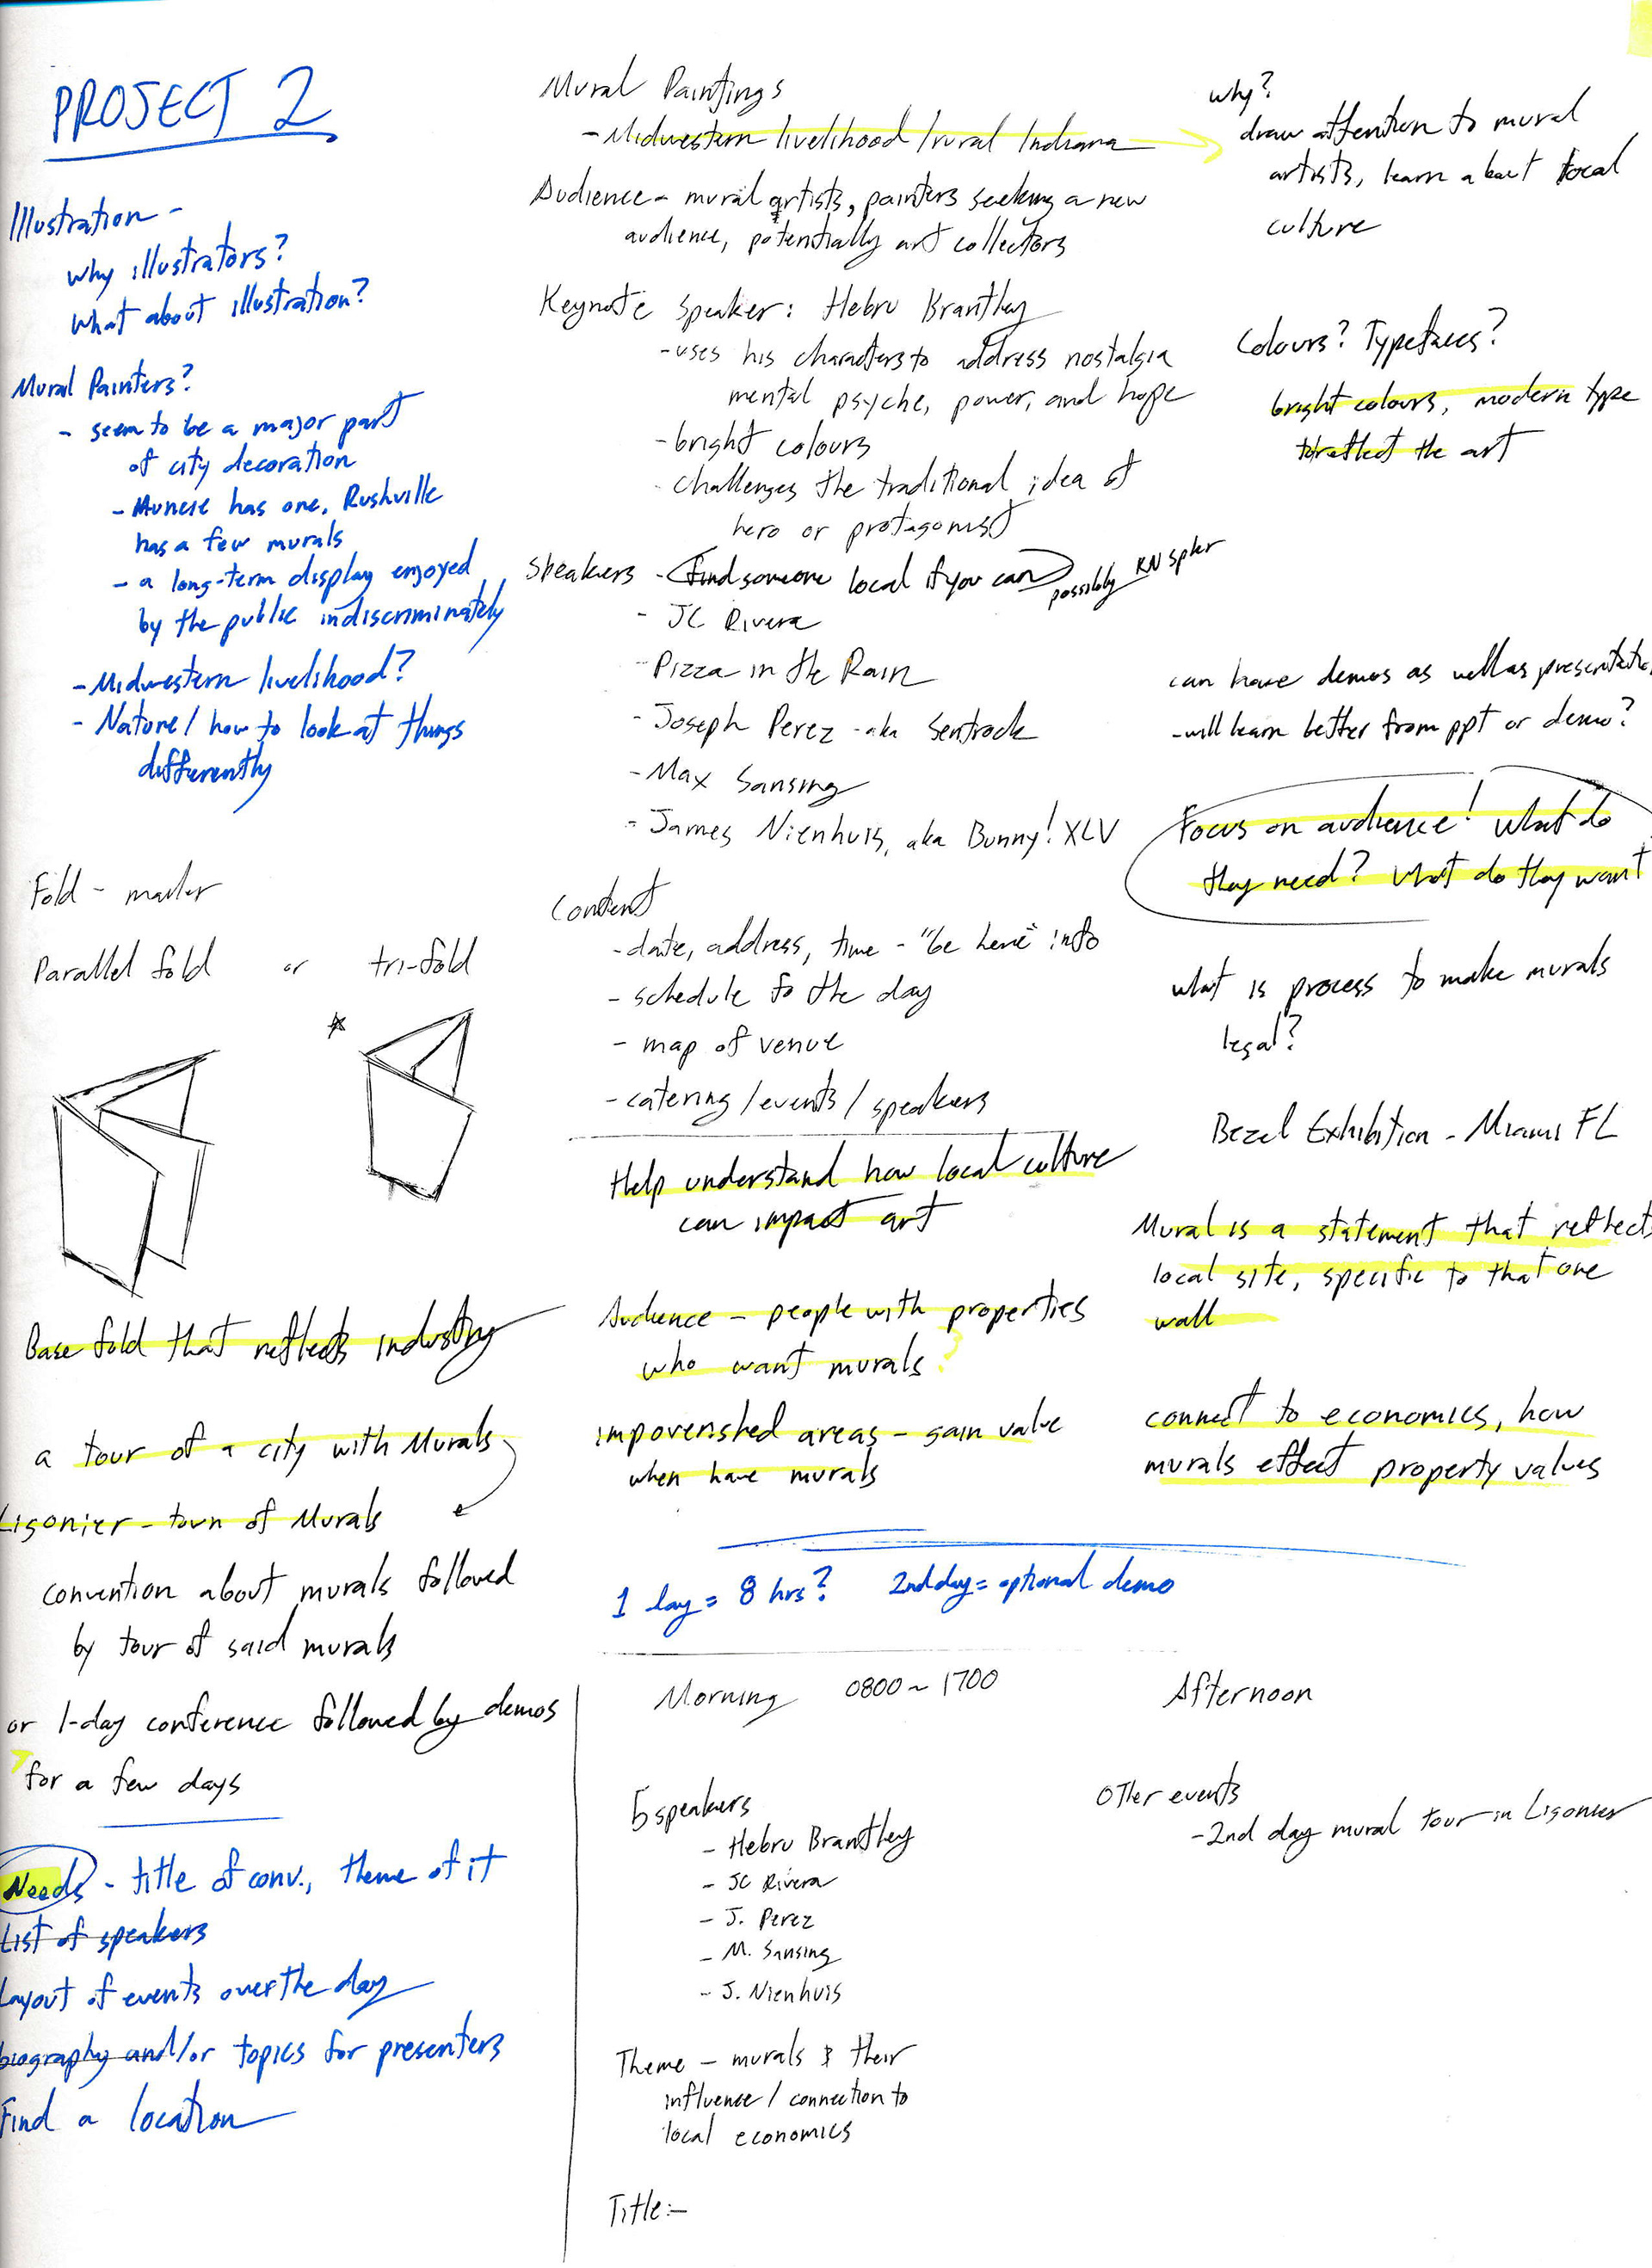 PROJECT 2
Illustration -
why illustrators?
what about illustration?
Mural Painters?
- seem to be a major part
of city decoration
- Muncie has one, Rushville
has a few murals
- a long-term display enjoyed
by the public indiscriminately
- Midwestern livelihood?
- Nature / how to look at things
differently
Fold - mailer
Parallel fold or tri-fold
Base fold that reflects industry
a tour of a city with Murals
Ligonier - town of Murals
convention about murals followed
by tour of said murals
or 1-day conference followed by demos
for a few days
Needs - title of conv., theme of it
List of speakers
Layout of events over the day
biography and/or topics for presenters
Find a location
Mural Paintings
- Midwestern livelihood / rural Indiana
Audience - mural artists, painters seeking a new
audience, potentially art collectors
Keynote Speaker: Hebru Brantley
- uses his characters to address nostalgia
mental psyche, power, and hope
- bright colours
- challenges the traditional idea of
hero or protagonist
Speakers - find someone local if you can possibly KN spker
- JC Rivera
- Pizza in the Rain
- Joseph Perez - aka Sentrock
- Max Sansing
- James Nienhuis, aka Bunny! XLV
Content
- date, address, time - "be here" info
- schedule fo the day
- map of venue
- catering / events / speakers
Help understand how local culture
can impact art
Audience - people with properties
who want murals?
impoverished areas - gain value
when have murals
why?
draw attention to mural
artists, learn about local
culture
Colours? Typefaces?
bright colours, modern type
to reflect the art
can have demos as well as
- will learn better from ppt or demo?
Focus on audience! What do
they need? What do they want
what is process to make murals
legal?
Bezel Exhibition - Miami FL
Mural is a statement that reflects
local site, specific to that one
wall
connect to economics, how
murals effect property values
1 day = 8 hrs? 2nd day = optional demo
Morning 0800 ~ 1700 Afternoon
5 speakers
- Hebru Brantley
- JC Rivera
- J. Perez
- M. Sansing
- J. Nienhuis
Other events
- 2nd day mural tour in Ligonier
Theme - murals & their
influence / connection to
local economics
Title:-